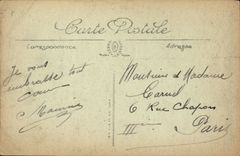 Carte Postale
Correspondance
Adresse
Je vous
embrasse tout
cœur
Maurice
Monsieur et Madame
6 Rue Chapon
IIIe
Paris